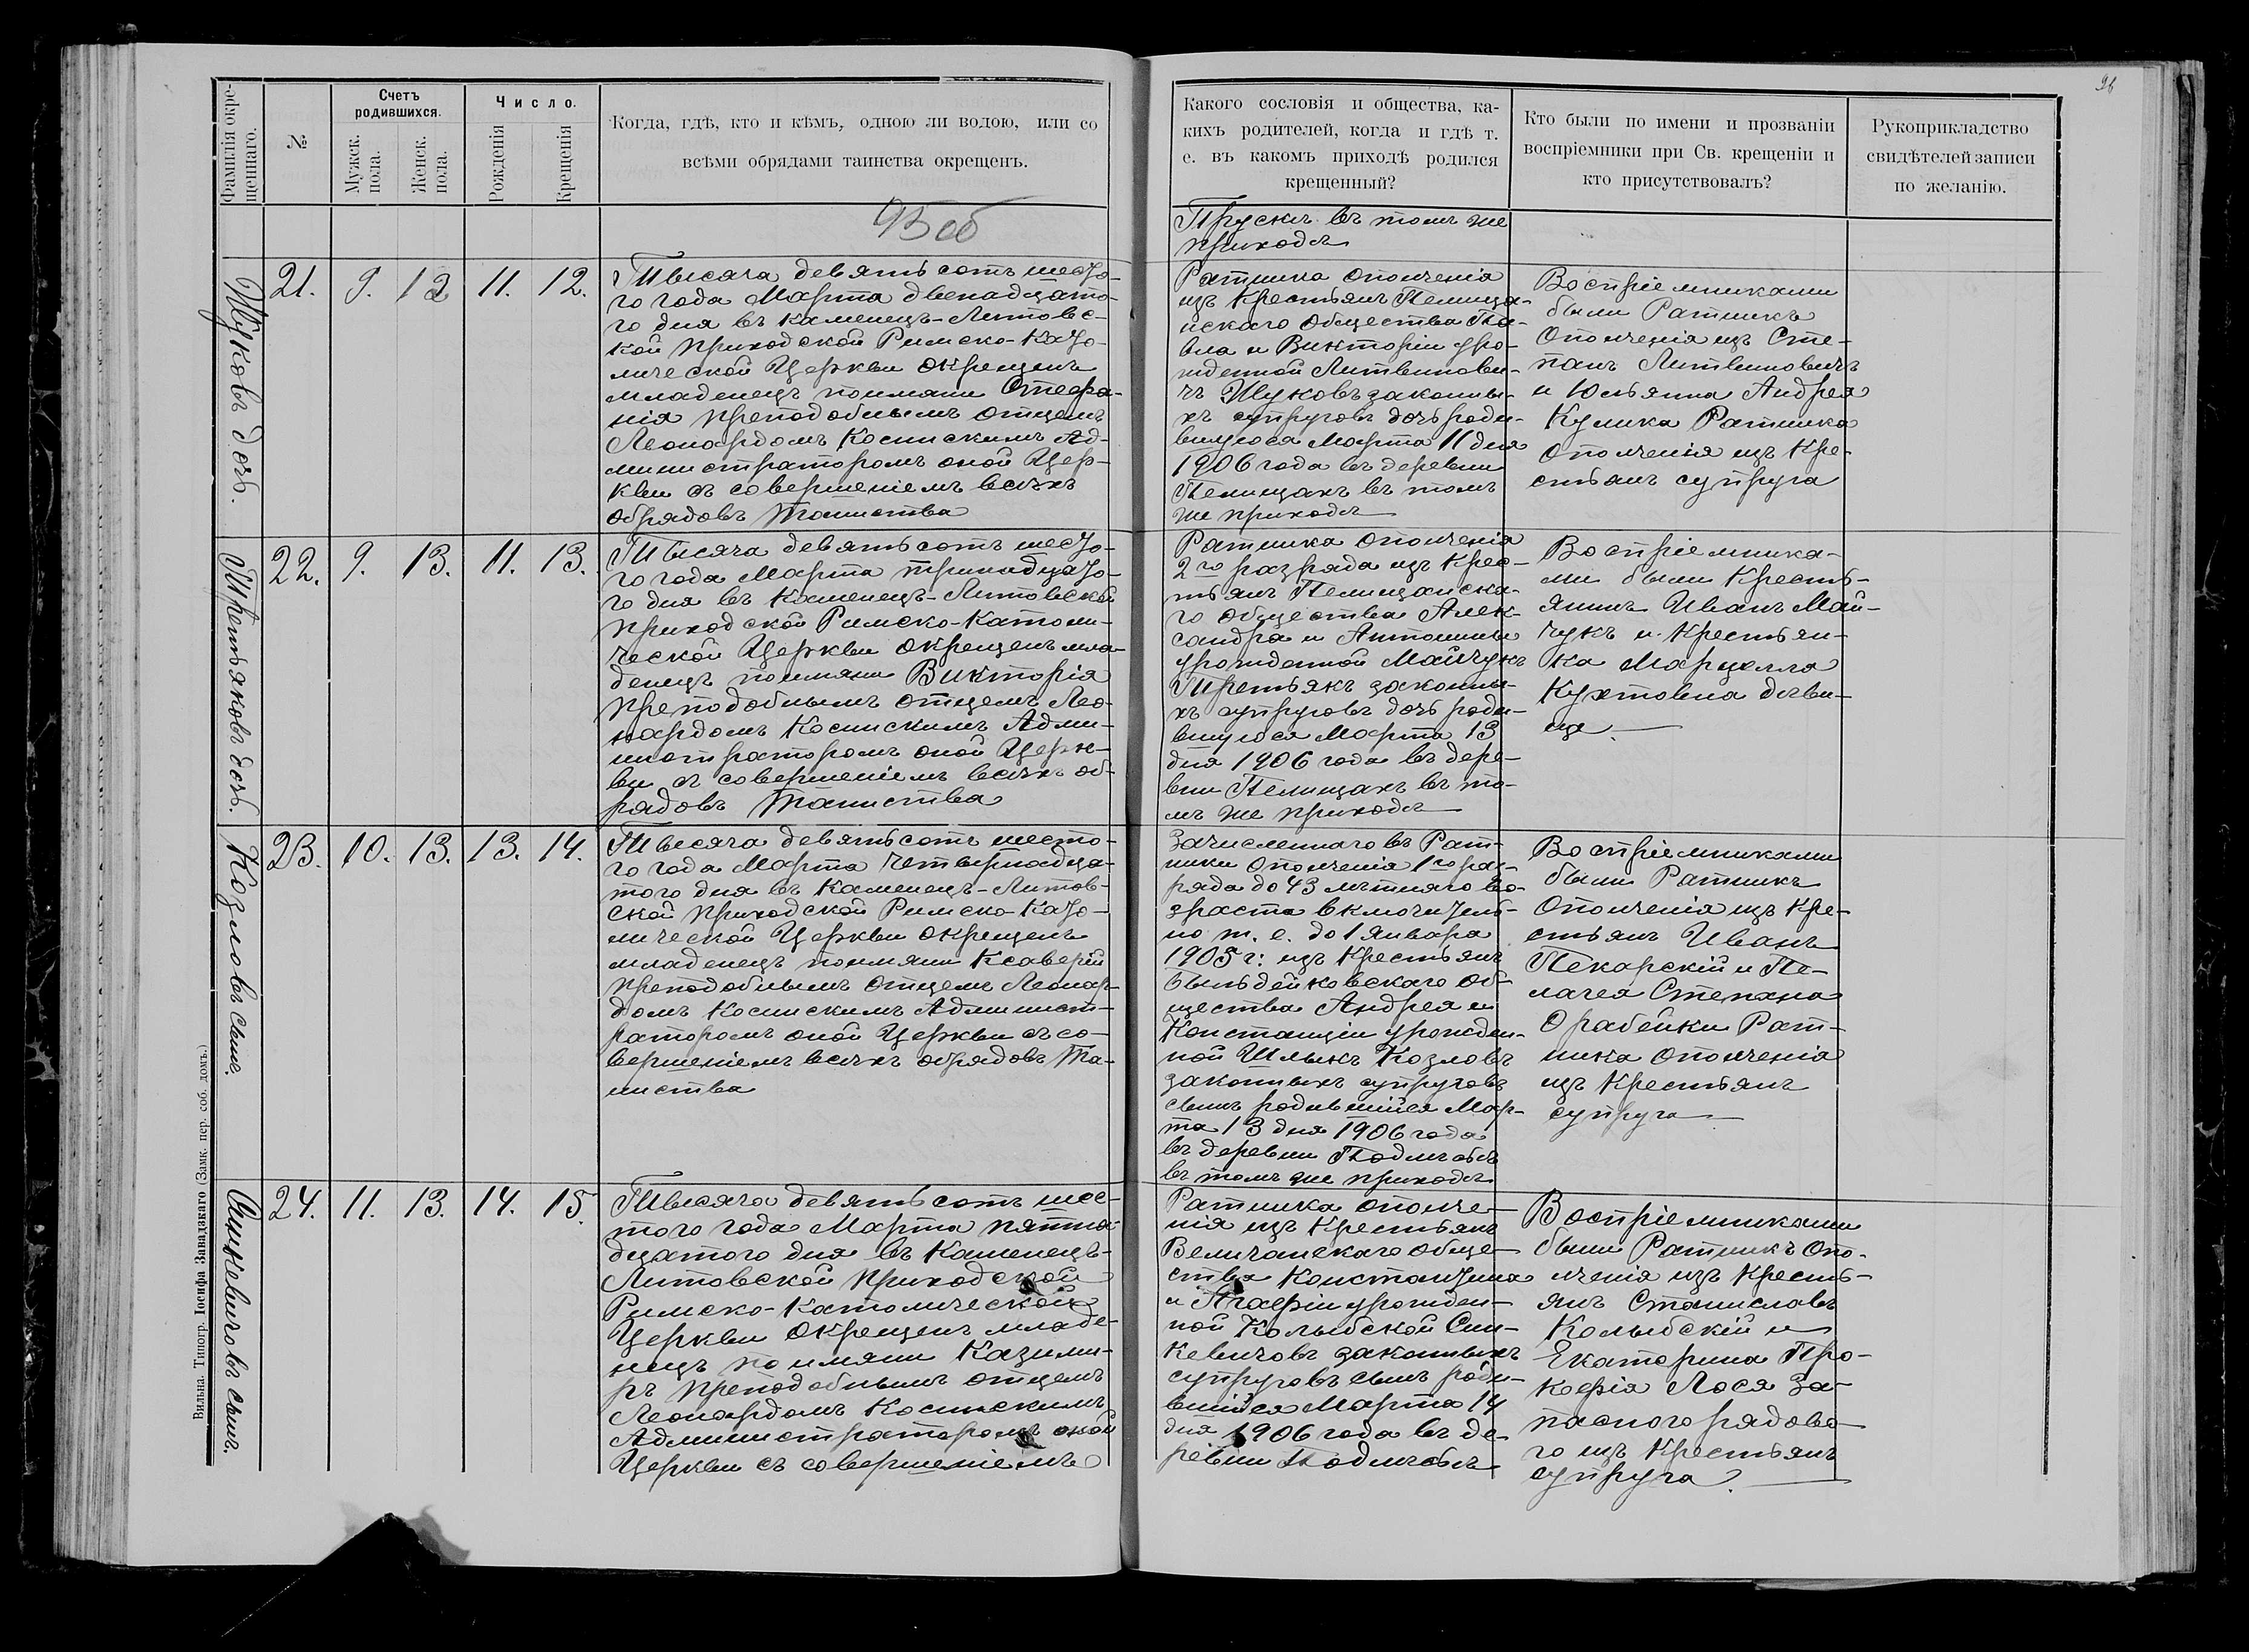 96
Фамилія окре-
щеннаго.
№
Счетъ
родившихся.
Мужск.
пола.
Женск.
пола.
Число.
Рожденія
Крещенія
Когда, гдѣ, кто и кѣмъ, одною ли водою, или со
всѣми обрядами таинства окрещенъ.
Какого сословія и общества, ка-
кихъ родителей, когда и гдѣ т.
е. въ какомъ приходѣ родился
крещенный?
Кто были по имени и прозваніи
воспріемники при Св. крещеніи и
кто присутствовалъ?
Рукоприкладство
свидѣтелей записи
по желанію.
95об
Прускъ въ томъ же
приходѣ
Жуковъ дочь.
21. 9. 12 11. 12.
Тысяча девятьсотъ шесто-
го года Марта двенадцато-
го дня въ Каменецъ-Литовс-
кой приходской Римско-Като-
лической Церкви окрещенъ
младенецъ поимяни Стефа-
нія преподобнымъ отцемъ
Леонардомъ Коспискимъ Ад-
министраторомъ оной Цер-
кви съ совершеніемъ всѣхъ
обрядовъ Таинства
Ратника ополченія
изъ Крестьянъ Пелища-
нскаго Общества Па-
вла и Викторіи уро-
жденной Литвинови-
чъ Жуковъ законны-
хъ супруговъ дочь роди-
вшуюся Марта 11 дня
1906 года въ деревни
Пелищахъ въ томъ
же приходѣ
Воспріемниками
были Ратникъ
Ополченія изъ Сте-
панъ Литвиновичъ
и Юльянна Андрея
Кулика Ратника
Ополченія изъ Кре-
стьянъ супруга
Третьяковъ дочь.
22. 9. 13. 11. 13.
Тысяча девятьсотъ шесто-
го года Марта тринадцато-
го дня въ Каменецъ-Литовской
приходской Римско-Католи-
ческой Церкви окрещенъ мла-
денецъ поимяни Викторія
преподобнымъ отцемъ Лео-
нардомъ Коспискимъ Адми-
нистраторомъ оной Церк-
ви съ совершеніемъ всѣхъ об-
рядовъ Таинства
Ратника ополченія
2го разряда изъ Крес-
тьянъ Пелищанска-
го общества Алек-
сандра и Антонины
урожденной Майчукъ
Третьякъ законны-
хъ супруговъ дочь роди-
вшуюся Марта 13
дня 1906 года въ дере-
вни Пелищахъ въ то-
мъ же приходѣ
Воспріемника-
ми были Кресть-
янинъ Иванъ Май-
чукъ и Крестьян-
ка Марцелла
Кухтовна дѣви-
ца.
Козловъ сынъ.
23. 10. 13. 13. 14.
Тысяча девятьсотъ шесто-
го года Марта четвернадца-
того дня въ Каменецъ-Литов-
ской приходской Римско-Като-
лической Церкви окрещенъ
младенецъ поимяни Ксаверій
преподобнымъ отцемъ Леонар-
домъ Коспискимъ Админист-
раторомъ оной Церкви съ со-
вершеніемъ всѣхъ обрядовъ Та-
инства
Зачисленнаго въ Рат-
ники ополченія 1го раз-
ряда до 43 лѣтняго во-
зраста включитель-
но т. е. до 1 Января
1905 г: изъ Крестьянъ
общества Андрея и
Констанціи урожден-
ной Шлыкъ Козловъ
законныхъ супруговъ
сынъ родившійся Мар-
та 13 дня 1906 года
въ деревни
въ томъ же приходѣ
Воспріемниками
были Ратникъ
Ополченія изъ Кре-
стьянъ Иванъ
Пекарскій и Пе-
лагея Степана
Орабейки Рат-
ника ополченія
изъ Крестьянъ
супруга
Синкевичовъ сынъ.
24. 11. 13. 14. 15.
Тысяча девятьсотъ шес-
того года Марта пятна-
дцатого дня въ Каменецъ-
Литовской приходской
Римско-Католической
Церкви окрещенъ младе-
нецъ поимяни Казими-
ръ преподобнымъ отцемъ
Леонардомъ Коспискимъ
Администраторомъ оной
Церкви съ совершеніемъ
Ратника ополче-
нія изъ Крестьянъ
Величанскаго обще-
ства Константина
и Агафіи урожден-
ной Колыбской Син-
кевичовъ законныхъ
супруговъ сынъ роди-
вшійся Марта 14
дня 1906 года въ де-
ревни
Воспріемниками
были Ратникъ Опо-
лченія изъ Кресть-
янъ Станиславъ
Колыбскій и
Екатерина Про-
кофія Лося За-
паснаго рядово-
го изъ Крестьянъ
супруга.
Вильна. Типогр. Іосифа Завадзкаго (Замк. пер. соб. домъ.)